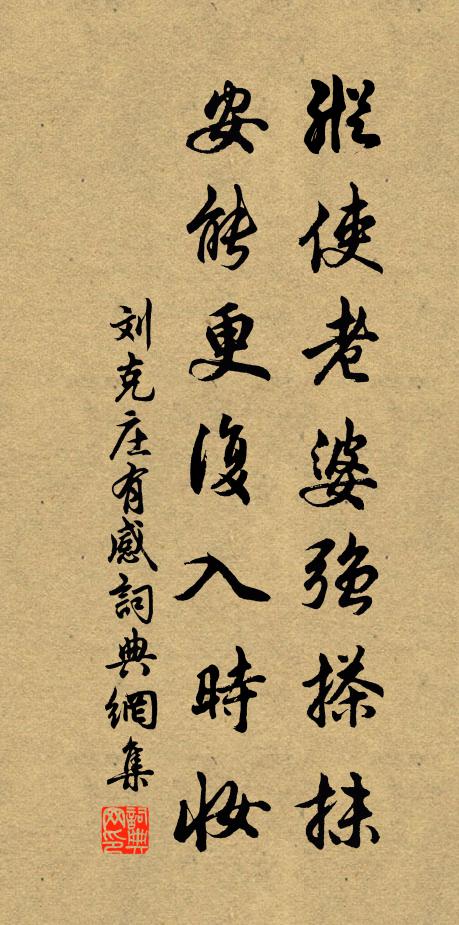 縱使老婆強搽抹
安能更復入時妝
刘克庄有感詞典網集
詞典网印